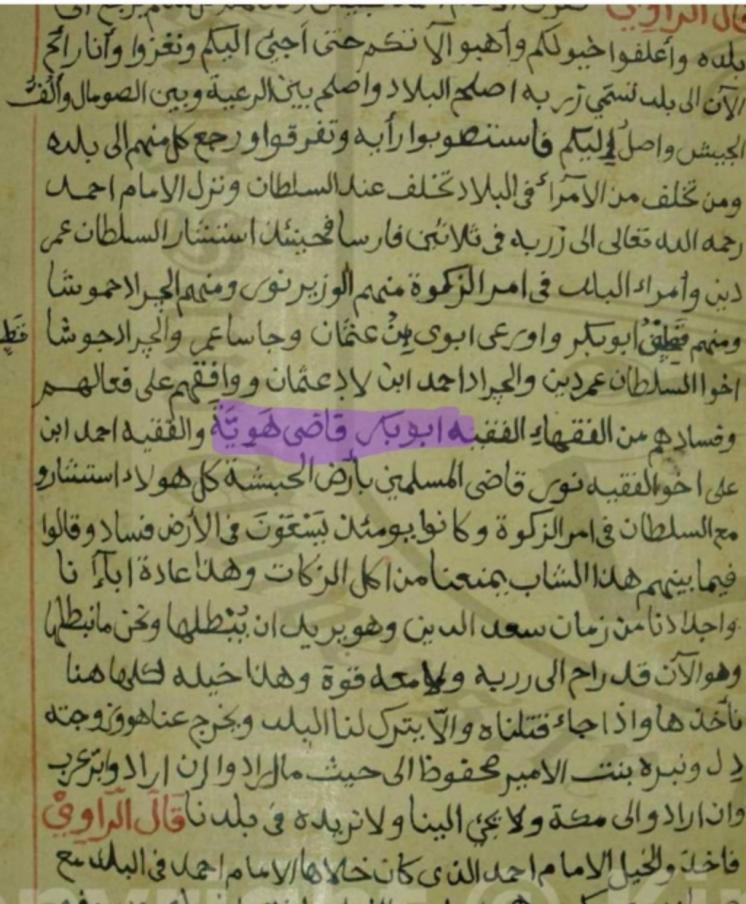 قال الراوي
بلده وأعلفوا خيولكم وأهبوا آلاتكم حتى أجئ اليكم ونغزوا وأنا رائح
الآن الى بلد تسمي زربه اصلح البلاد واصلح بين الرعية وبين الصومال وألف
الجيش واصل إليكم فاستصوبوا رأيه وتفرقوا ورجع كل منهم الى بلده
ومن تخلف من الأمراء في البلاد تخلف عند السلطان ونزل الامام احمد
رحمه الله تعالى الى زربه في ثلاثين فارسا فحينئذ استشار السلطان عمر
دين وأمراء البلد في امر الزكوة منهم الوزير نور ومنهم الجراد حموشا
ومنهم ابوبكر واورعى ابوى بن عثمان وجاسا عمر والجراد جوشا
اخوا السلطان عمردين والجراد احمد ابن لاد عثمان ووافقهم على فعالهم
وفسادهم من الفقهاء الفقيه ابوبكر قاضى هَوِيَّة والفقيه احمد ابن
على اخو الفقيه نور قاضى المسلمين بأرض الحبشة كل هولاء استشارو
مع السلطان في امر الزكوة وكانوا يومئذ يَسْعَوْنَ في الأرض فساد وقالوا
فيما بينهم هذا الشاب يمنعنا من اكل الزكات وهذا عادة اباآنا
واجدادنا من زمان سعد الدين وهو يريد ان يُبْطلها ونحن مانبطلها
وهو الآن قد راح الى زربه ولا معه قوة وهذا خيله كلها هنا
نأخذها واذا جاء قتلناه والّا يترك لنا البلد ويخرج عنا هو وزوجته
دل ونبره بنت الامير محفوظ الى حيث ما اراد وا ان اراد وا بر عرب
وان اراد والى مكة ولا يجي الينا ولا نريده في بلدنا قالَ الرّاوِيْ
فاخذ والخيل الامام احمد الذى كان خلاها الامام احمد في البلد مع